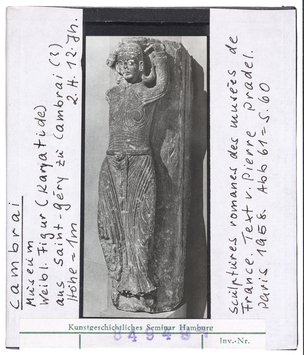 Cambrai
Museum
Weibl. Figur (Karyatide)
aus Saint-Géry zu Cambrai (?)
Höhe = 1m 2. H. 12. Jh.
Sculptures romanes des musées de
France. Text v. Pierre Pradel.
Paris 1958. Abb 61 = S. 60
Kunstgeschichtliches Seminar Hamburg
Inv.-Nr.